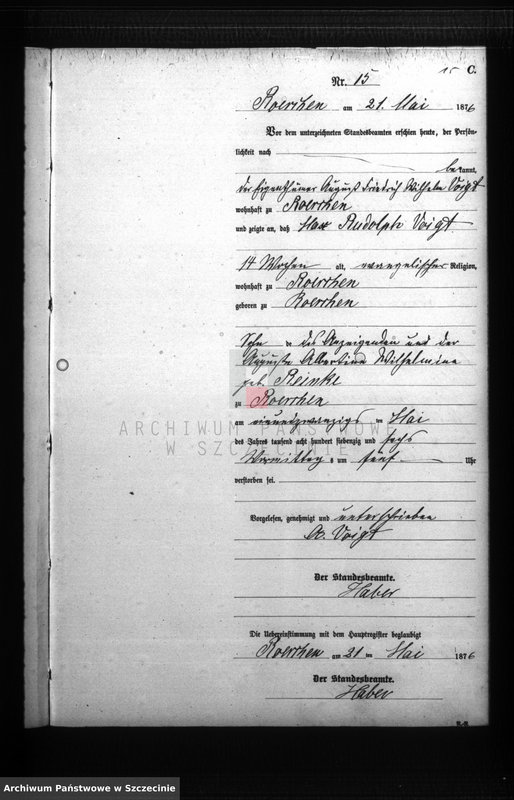 15 C.
Nr. 15
Roerchen am 21. Mai 1876
Vor dem unterzeichneten Standesbeamten erschien heute, der Persön-
lichkeit nach
bekannt,
der Eigenthümer August Friedrich Wilhelm Voigt
wohnhaft zu Roerchen
und zeigte an, daß Max Rudolph Voigt
14 Wochen alt, evangelischer Religion,
wohnhaft zu Roerchen
geboren zu Roerchen
Sohn des Anzeigenden und der
Auguste Albertine Wilhelmine
geb. Reinke
zu Roerchen
am Mai
des Jahres tausend acht hundert siebenzig und sechs
Vormittags um fünf Uhr
verstorben sei.
Vorgelesen, genehmigt und unterschrieben
A. Voigt
Der Standesbeamte.
Haber
Die Uebereinstimmung mit dem Hauptregister beglaubigt
Roerchen am 21 ten Mai 1876
Der Standesbeamte.
Haber
ARCHIWUM PAŃSTWOWE
W SZCZECINIE
Archiwum Państwowe w Szczecinie